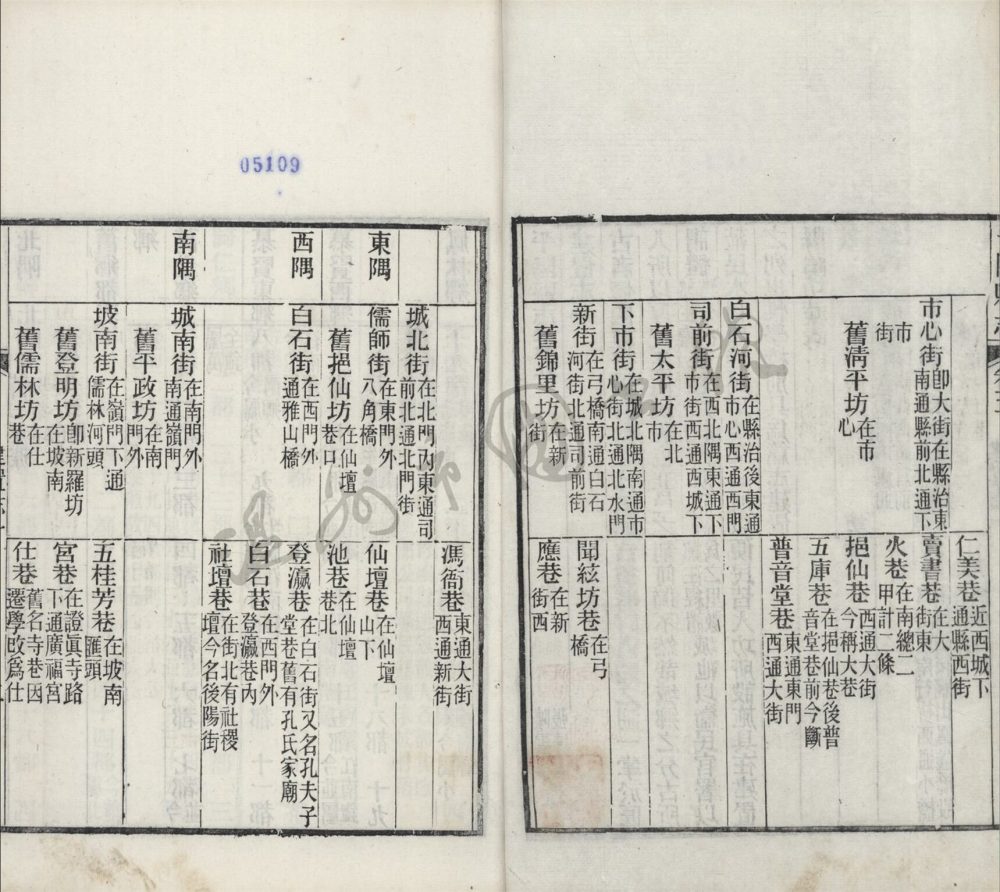 仁美巷近西城下通縣西街
市心街卽大街在縣治東南通縣前北通下
賣書巷在大街東
市街
火巷在南總二甲計二條
舊清平坊在市心
挹仙巷西通大街今稱大巷
五庫巷在挹仙巷後普音堂巷前今斷
普音堂巷東通東門西通大街
白石河街在縣治後東通市心西通西門
司前街在西北隅東通下市街西通西城下
舊太平坊在北市
下市街在城北隅南通市心街北通北水門
新街在弓橋南通白石河街北通司前街
聞絃坊巷在弓橋
舊錦里坊在新街
應巷在新街西
05109
馮衙巷東通大街西通新街
城北街在北門內東通司前北通北門街
東隅
儒師街在東門外八角橋
仙壇巷在仙壇山下
舊挹仙坊在仙壇巷口
池巷在仙壇巷北
西隅
白石街在西門外通雅山橋
登瀛巷在白石街又名孔夫子堂巷舊有孔氏家廟
白石巷在西門外登瀛巷內
社壇巷在街北有社稷壇今名後陽街
南隅
城南街在南門外南通嶺門
舊平政坊在南門外
坡南街在嶺門下通儒林河頭
五桂芳巷在坡南匯頭
舊登明坊在坡南卽新羅坊
宮巷在證眞寺路下通廣福宮
舊儒林坊在仕巷
仕巷舊名寺巷因遷學改爲仕